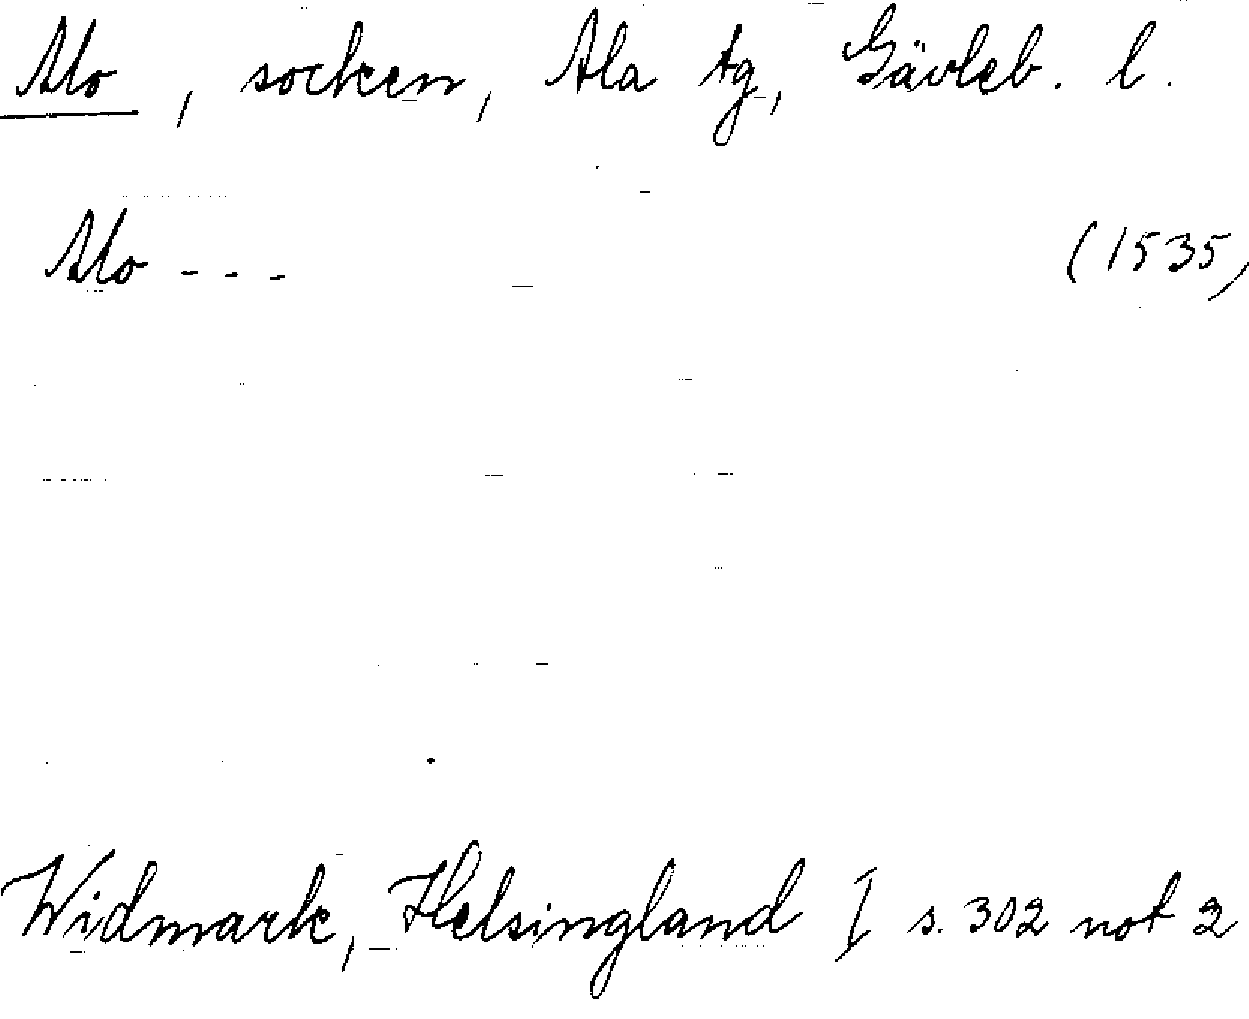 Mo, socken, Ala tg, Gävleb. l.
Mo - - - (1535)
Widmark, Helsingland I s. 302 not 2